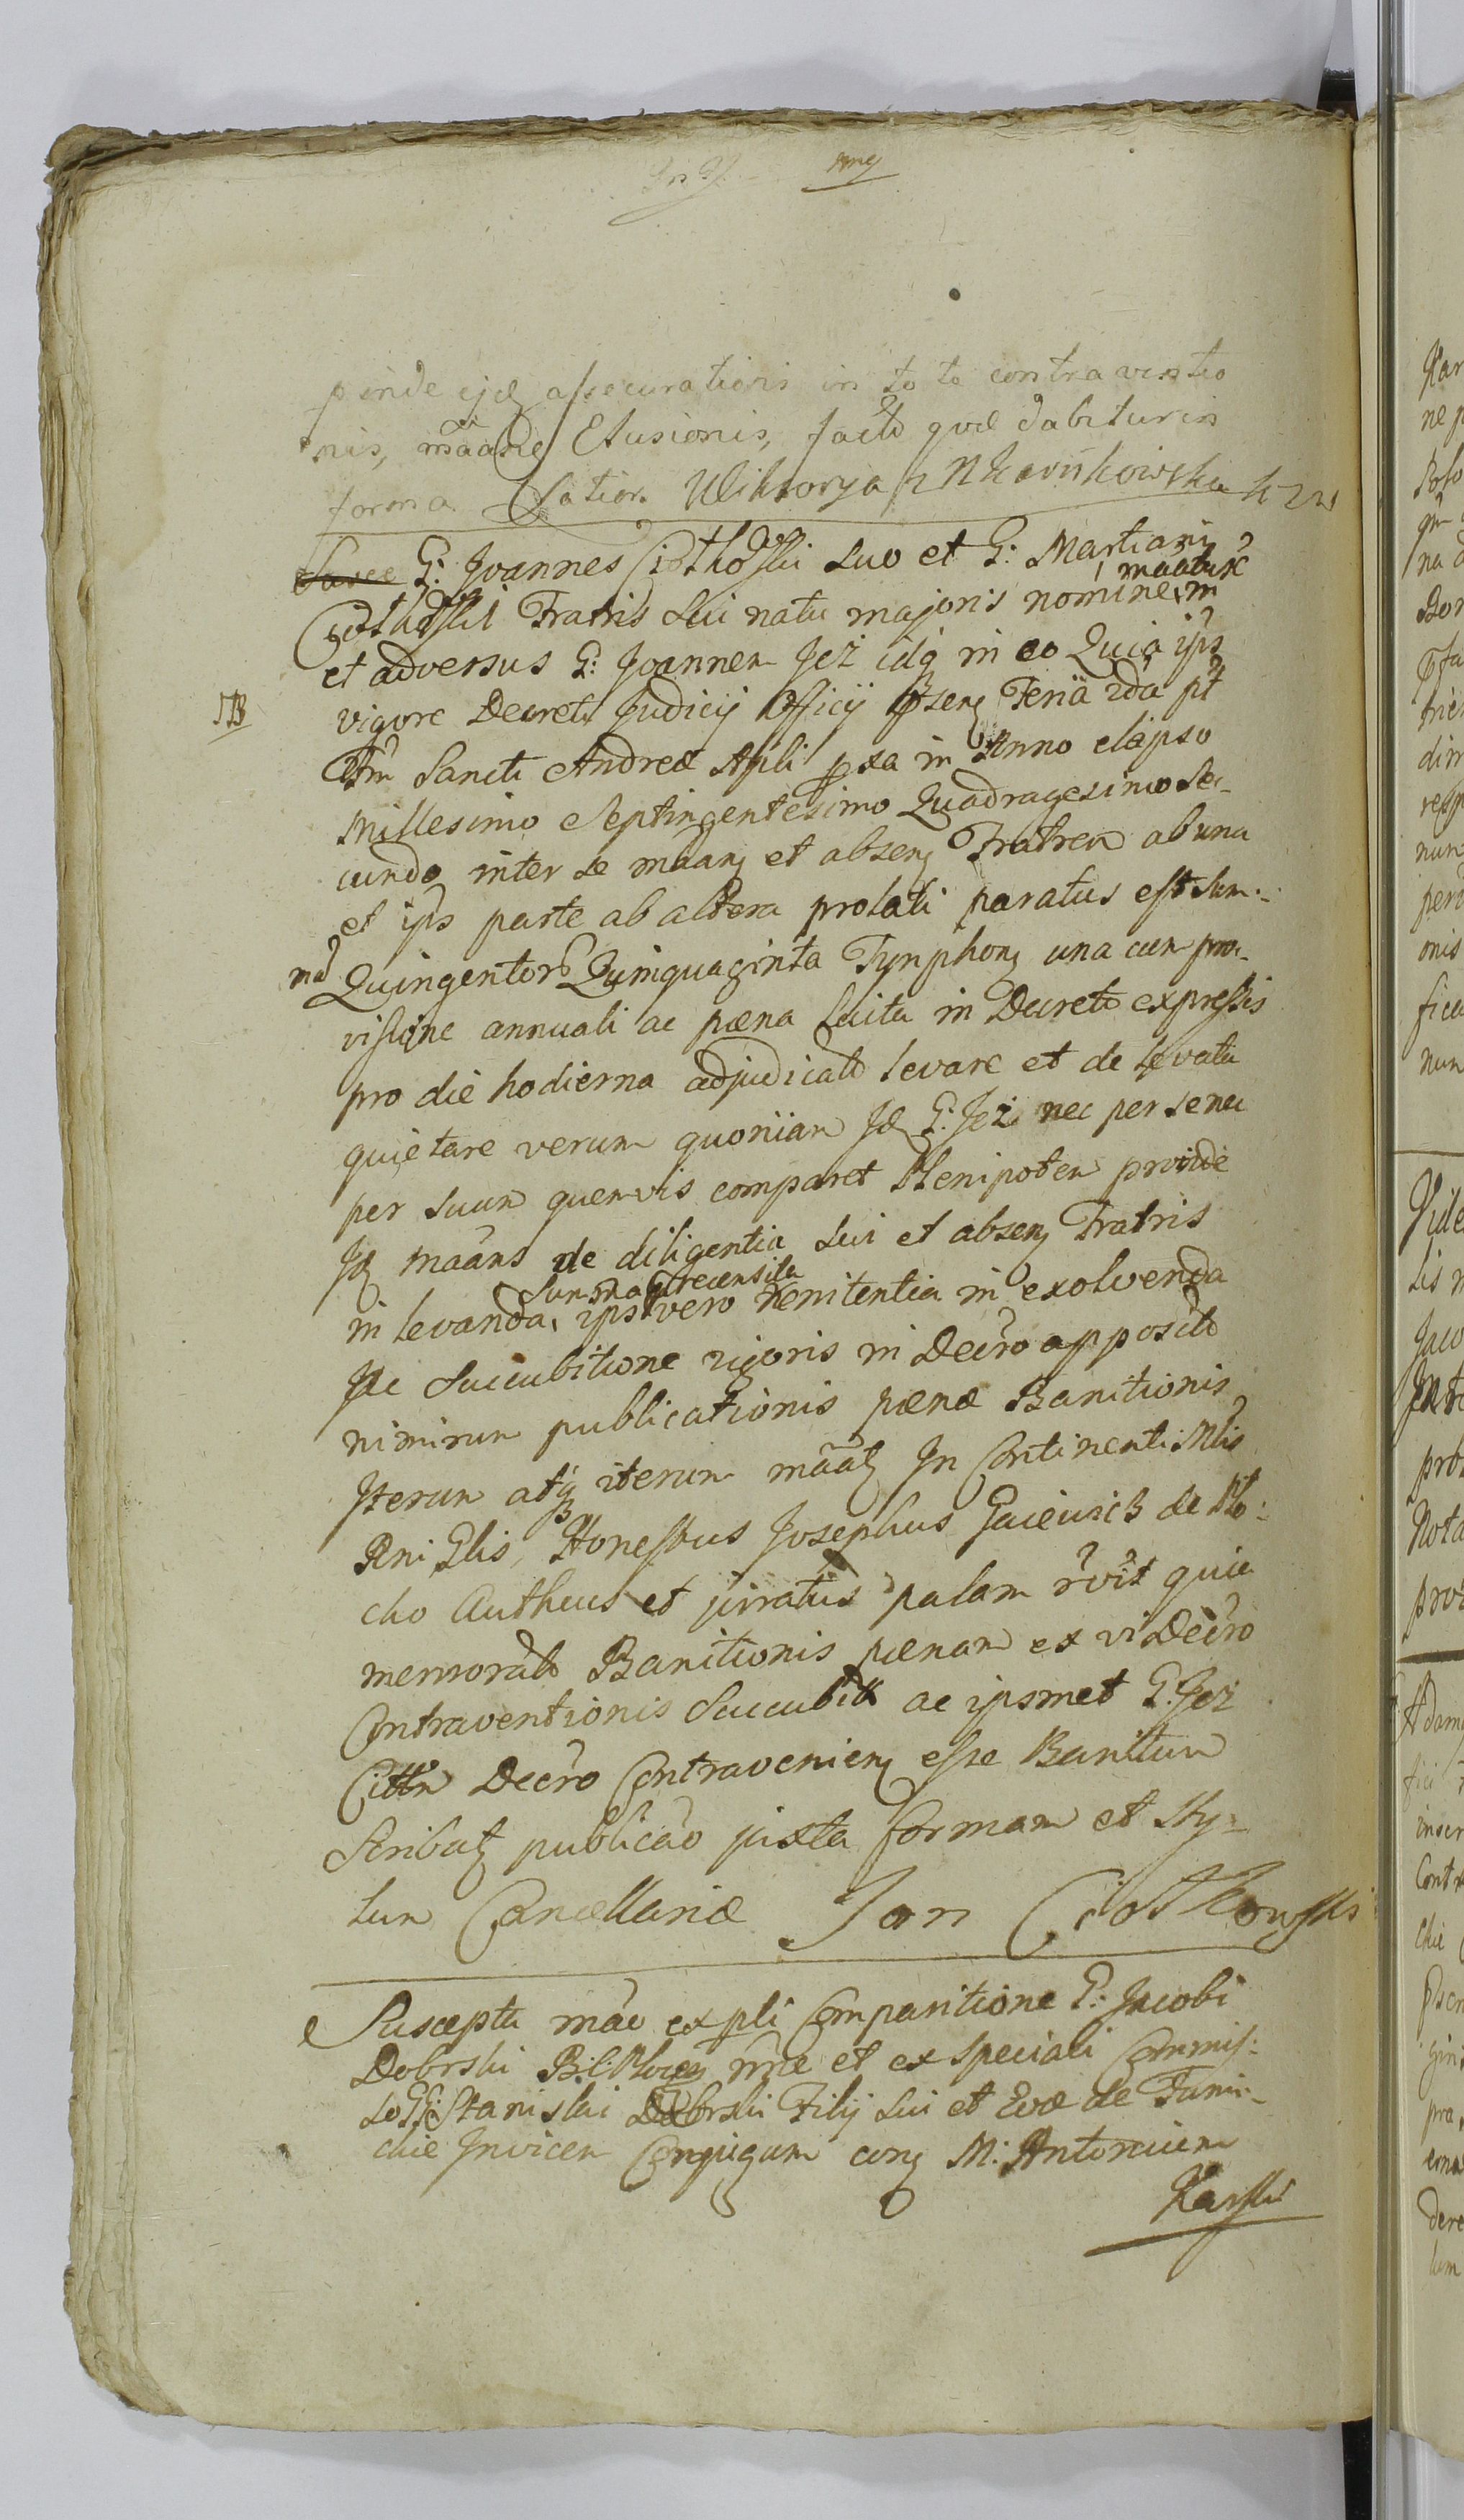 pinde ejg assecurationis in toto contraventio
nis, mãande Elusionis, facto quæ dabitur in
forma Lation. Wiktorya
G: Joannes Ciotkoski suo et G: Martiani
Ciotkoski Fratris sui natu majoris nomine
et adversus G: Joannem Jez idq in eo Quia ips
NB
vigore Decreti Judicij Officij psenq Feria 2da pt
Ftm Sancti Andreæ Apli pxa in Anno elapso
Millesimo Septingentesimo Quadragesimo Se-
cundo inter se mãanq et absenq Fratrem ab una
et ips parte ab altera prolati paratus est Sum-
ma Quingentor Quinquaginta Tynphonq una cum pro-
visione annuali ac pæna lucita in Decreto expressis
pro die hodierna adjudicato levare et de levata
quietare verum quoniam Jd G: Jez nec per se nec
per suum quemvis comparet Plenipoten proinde
Jd mãans de diligentia sui et absenq Fratris
Summa precensita
in levanda, ips vero renitentia in exolvenda
Ac Succubitione rigoris in Decro apposito
nimirum publicationis pænæ Banitionis
Iterum atq iterum mãatq In Continenti Mlis
Rni Glis, Honestus Josephus de Plo-
cko Authcus et juratus palam rvit quia
memorato Banitionis pænam ex vi Decro
Contraventionis Succubit ac ipsmet G: Jez
Citte Decro Contravenienq esse Banitum
Scribatq publicao juxta formam et Sty-
lum Cancellariæ Jan Ciotkowski
Suscepta mão ex pli Comparitione G: Jacobi
Dobrski B: C: Plocen nne et ex speciali Commis-
so G: Stanislai Dobrski Filij sui et Evæ de
Invicem Conjugum conq M: Antonium
Karski